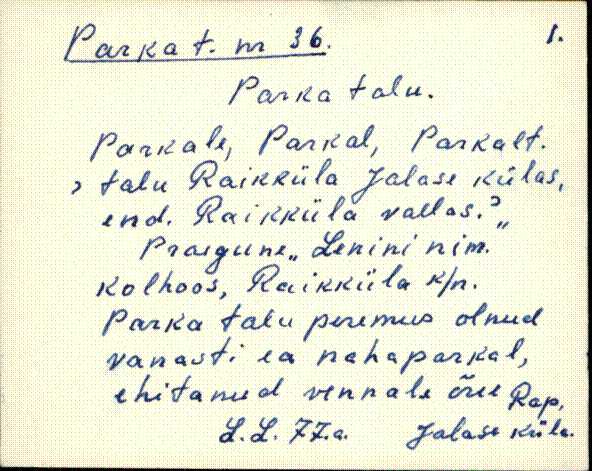 Parka t. nr 36. 1.
Parka talu.
Parkale, Parkal, Parkalt.
> talu Raikküla Jalase külas,
end. Raikküla vallas.?„
Praegune „Lenini nim.
kolhoos, Raikküla k/n.
Parka talu peremus olnud
vanasti ea nahaparkal,
ehitanud vennale õue Rap.
L.L. 77.a. Jalase küla.